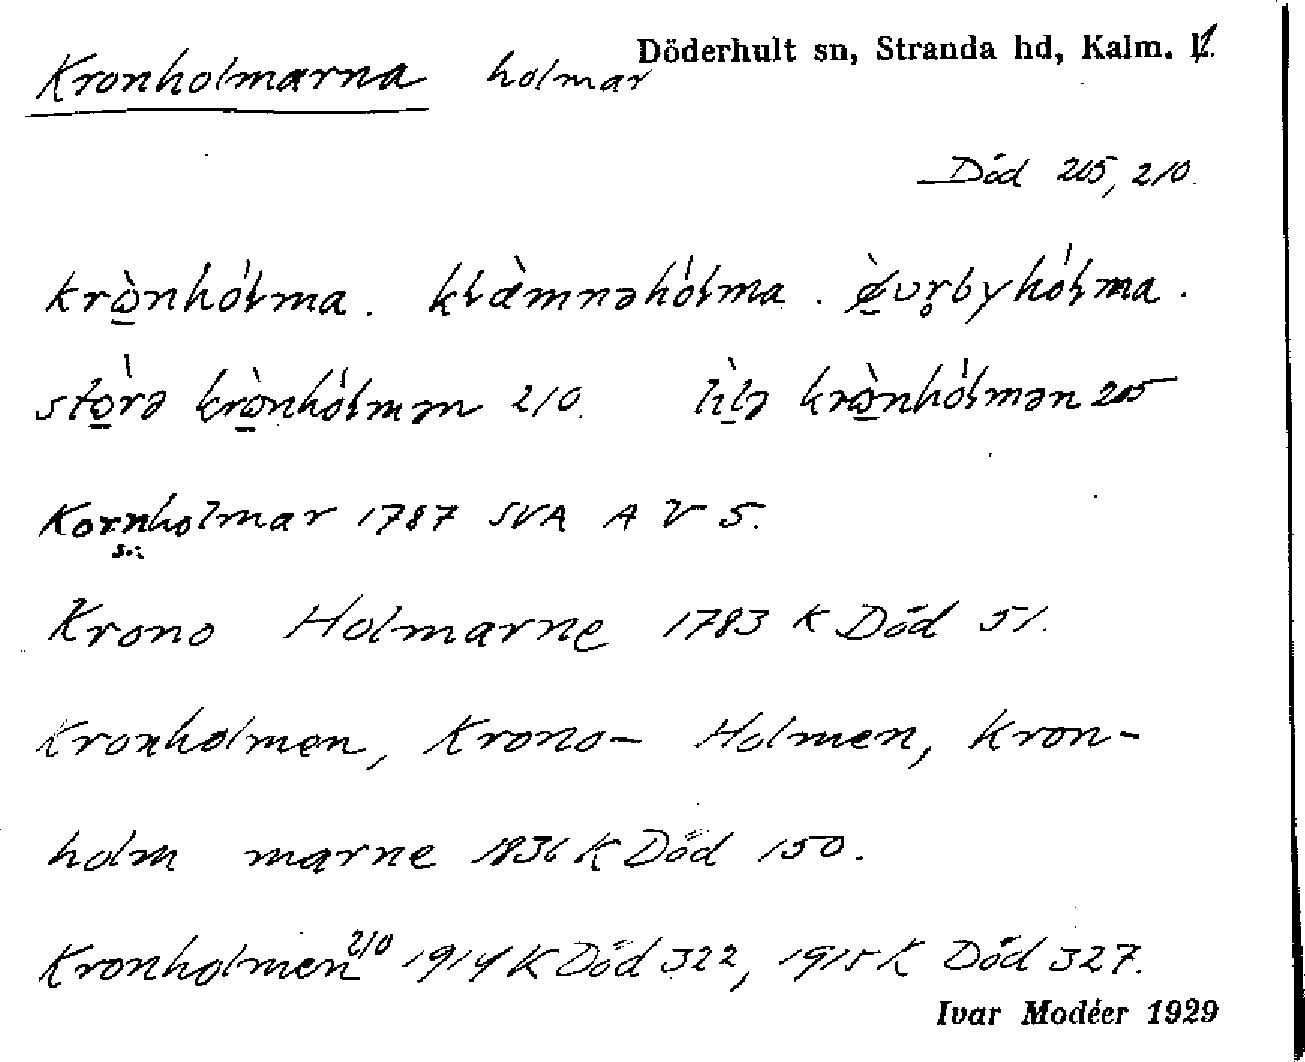 Döderhult sn, Stranda hd, Kalm. l.
Kronholmarna holmar
Död 205, 210.
krò̱nhól̩ma. kl̩æ̀mnəhól̩ma. ø̱̀vr̥byhól̩ma.
stò̱rə krò̱nhól̩mən 210. lìl̩ə krò̱nhól̩mən 205
Kornholmar 1787 SVA A V 5.
s.:
Krono Holmarne 1783 K Död 51.
Kronholmen, Krono- Holmen, Kron-
holm marne 1836 K Död 150.
Kronholmen 210 1914 K Död 322, 1915 K Död 327.
Ivar Modéer 1929